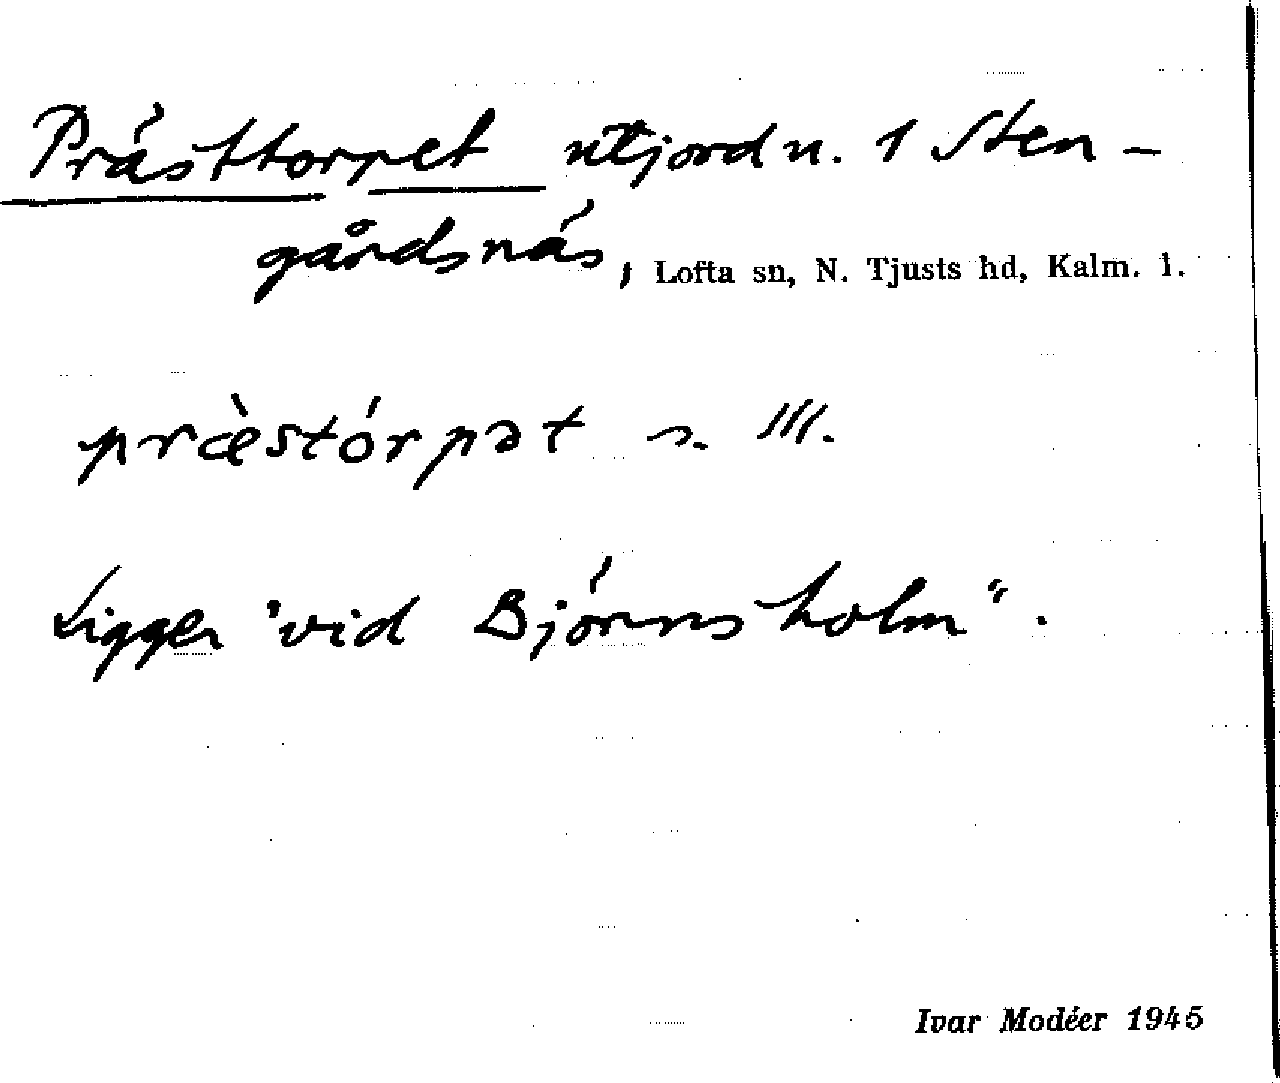 Prästtorpet utjord n. 1 Sten-
gårdsnäs, Lofta sn, N. Tjusts hd, Kalm. l.
præ̀stórpət n. III.
Ligger "vid Björnsholm".
Ivar Modéer 1945